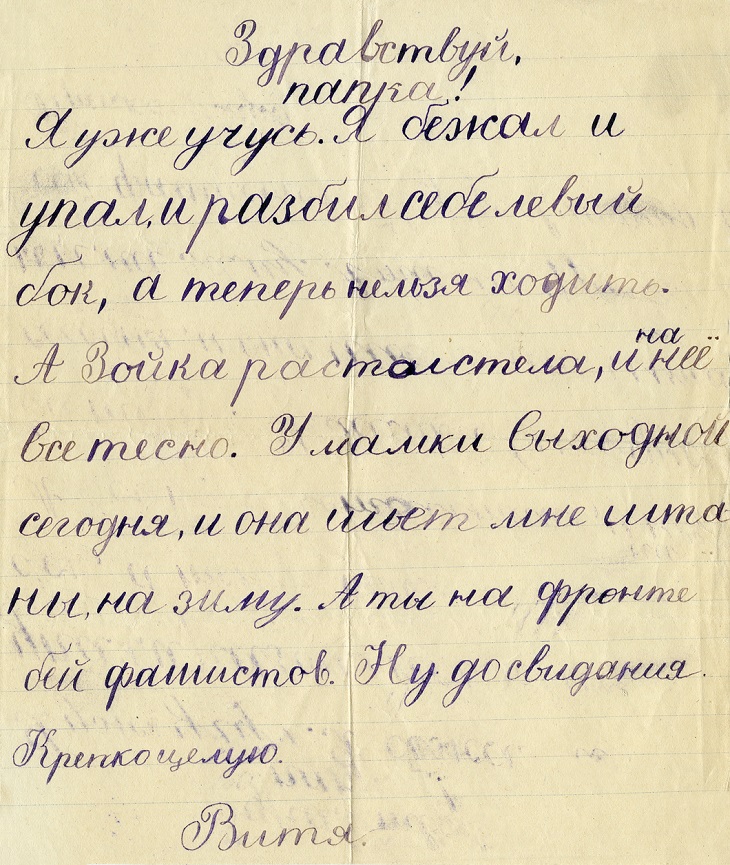 Здравствуй,
папка!
Я уже учусь. Я бежал и
упал, и разбил себе левый
бок, а теперь нельзя ходить.
А Зойка растолстела, и на неё
все тесно. У мамки выходной
сегодня, и она шьет мне шта
ны, на зиму. А ты на фронте
бей фашистов. Ну досвидания.
Крепко целую.
Витя.